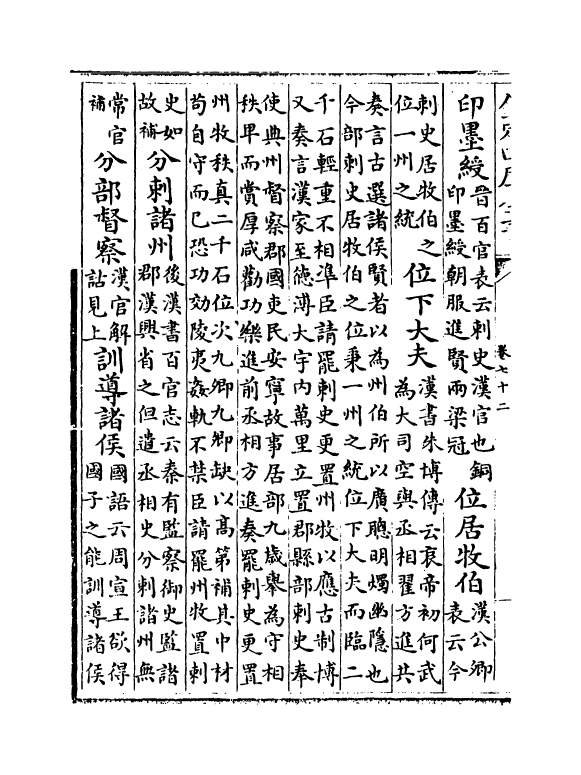 卷七十二
印墨綬晉百官表云刺史漢官也銅印墨綬朝服進賢兩梁冠位居牧伯漢公卿表云今
刺史居牧伯之位一州之統位下大夫漢書朱博傳云哀帝初何武為大司空與丞相翟方進共
奏言古選諸侯賢者以為州伯所以廣聰明燭幽隱也
今部刺史居牧伯之位秉一州之統位下大夫而臨二
千石輕重不相凖臣請罷刺史更置州牧以應古制博
又奏言漢家至德溥大宇内萬里立置郡縣部刺史奉
使典州督察郡國吏民安寧故事居部九歲舉為守相
秩卑而賞厚咸勸功樂進前丞相方進奏罷刺史更置
州牧秩真二千石位次九卿九卿缺以高第補其中材
苟自守而已恐功効陵夷姦軌不禁臣請罷州牧置刺
史如故補分刺諸州後漢書百官志云秦有監察御史監諸郡漢興省之但遣丞相史分刺諸州無
常官補分部督察漢官解詁見上訓導諸侯國語云周宣王欲得國子之能訓導諸侯